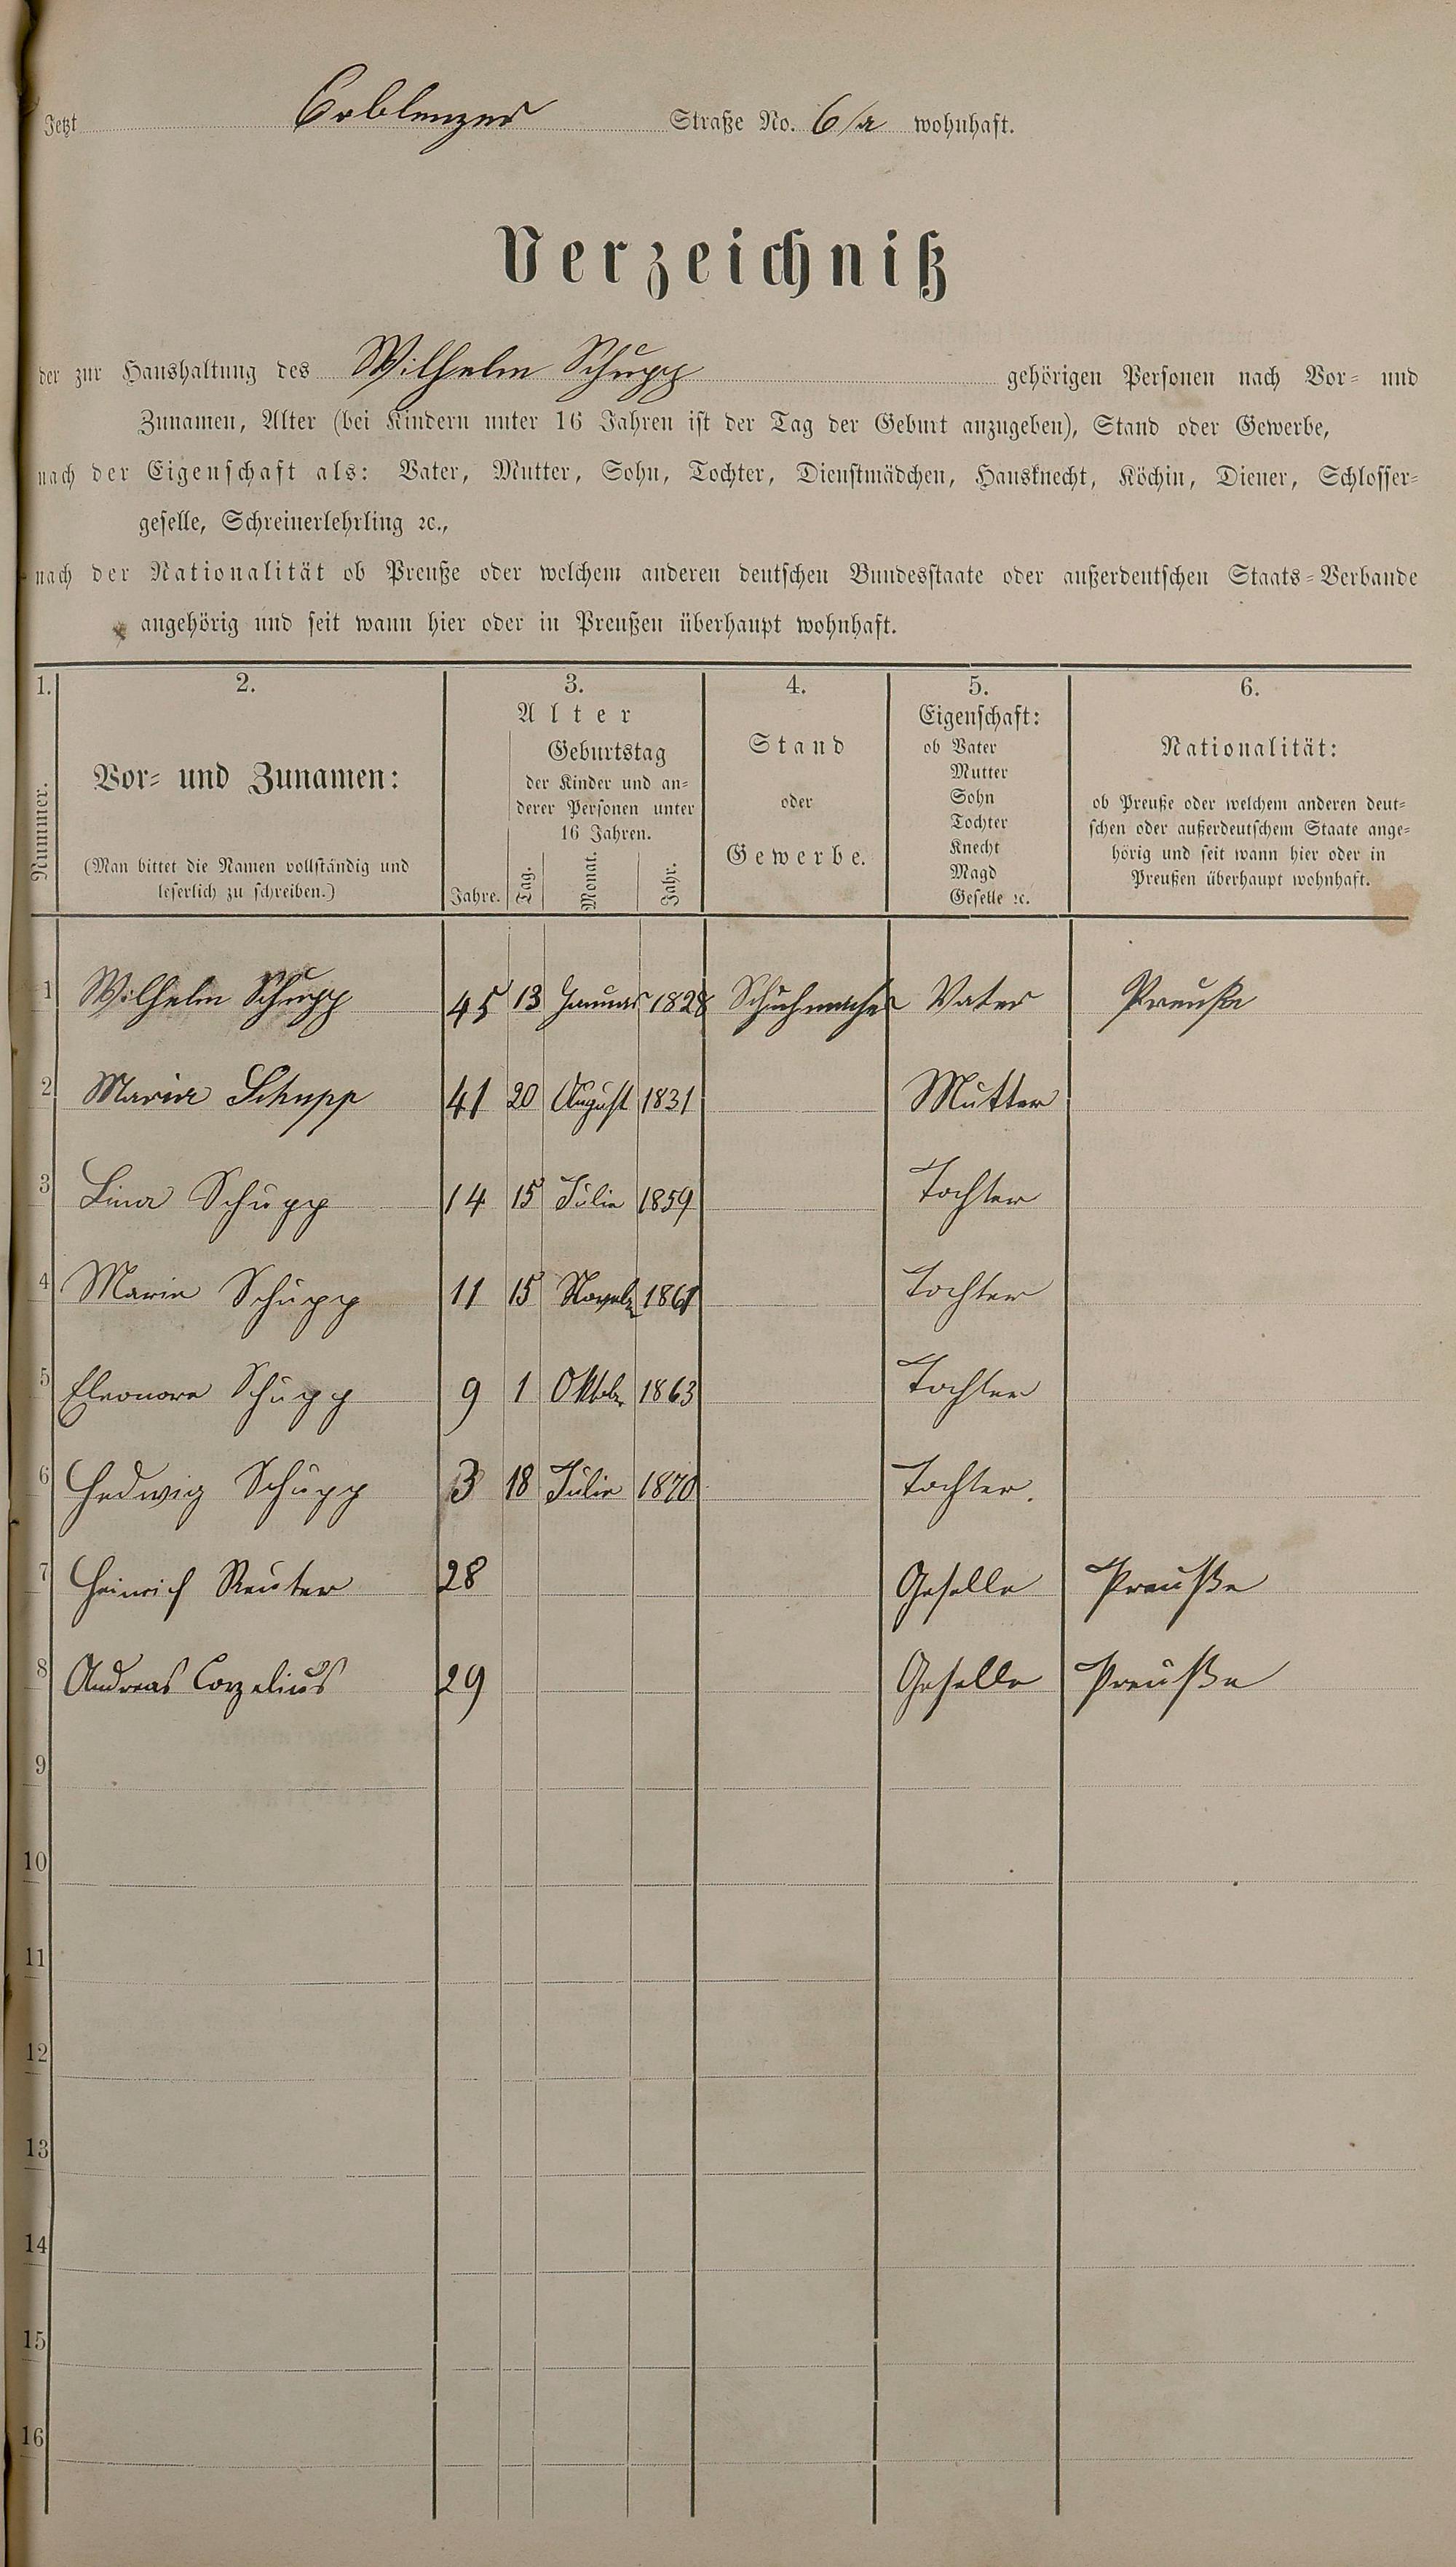 Jetzt Coblenzer Straße No. 6/a wohnhaft.
Verzeichniß
der zur Haushaltung des Wilhelm Schupp gehörigen Personen nach Vor- und
Zunamen, Alter (bei Kindern unter 16 Jahren ist der Tag der Geburt anzugeben), Stand oder Gewerbe,
nach der Eigenschaft als: Vater, Mutter, Sohn, Tochter, Dienstmädchen, Hausknecht, Köchin, Diener, Schlosser-
geselle, Schreinerlehrling ꝛc.,
nach der Nationalität ob Preuße oder welchem anderen deutschen Bundesstaate oder außerdeutschen Staats-Verbande
angehörig und seit wann hier oder in Preußen überhaupt wohnhaft.
1. 2. 3. 4. 5. 6.
Nummer.
Vor- und Zunamen:
(Man bittet die Namen vollständig und
leserlich zu schreiben.)
Alter
Jahre.
Geburtstag
der Kinder und an-
derer Personen unter
16 Jahren.
Tag. Monat. Jahr.
Stand
oder
Gewerbe.
Eigenschaft:
ob Vater
Mutter
Sohn
Tochter
Knecht
Magd
Geselle ꝛc.
Nationalität:
ob Preuße oder welchem anderen deut-
schen oder außerdeutschem Staate ange-
hörig und seit wann hier oder in
Preußen überhaupt wohnhaft.
1 Wilhelm Schupp 45 13 Januar 1828 Schuhmacher Vater Preuße
2 Maria Schupp 41 20 August 1831 Mutter
3 Lina Schupp 14 15 Julie 1859 Tochter
4 Marie Schupp 11 15 Novebr 1861 Tochter
5 Eleonore Schupp 9 1 Oktbr 1863 Tochter
6 Hedwig Schupp 3 18 Julie 1870 Tochter.
7 Heinrich Reuter 28 Geselle Preuße
8 Andreas Corzelius 29 Geselle Preuße
9
10
11
12
13
14
15
16